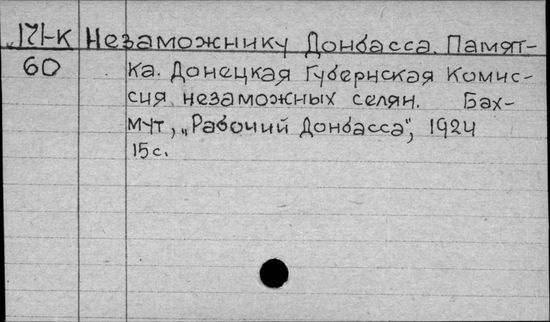 171-К Незаможнику Донбасса. Памят-
60 ка. Донецкая Губернская Комис-
сия незаможных селян. Бах-
мут, „Рабочий Донбасса", 1924
15 с.